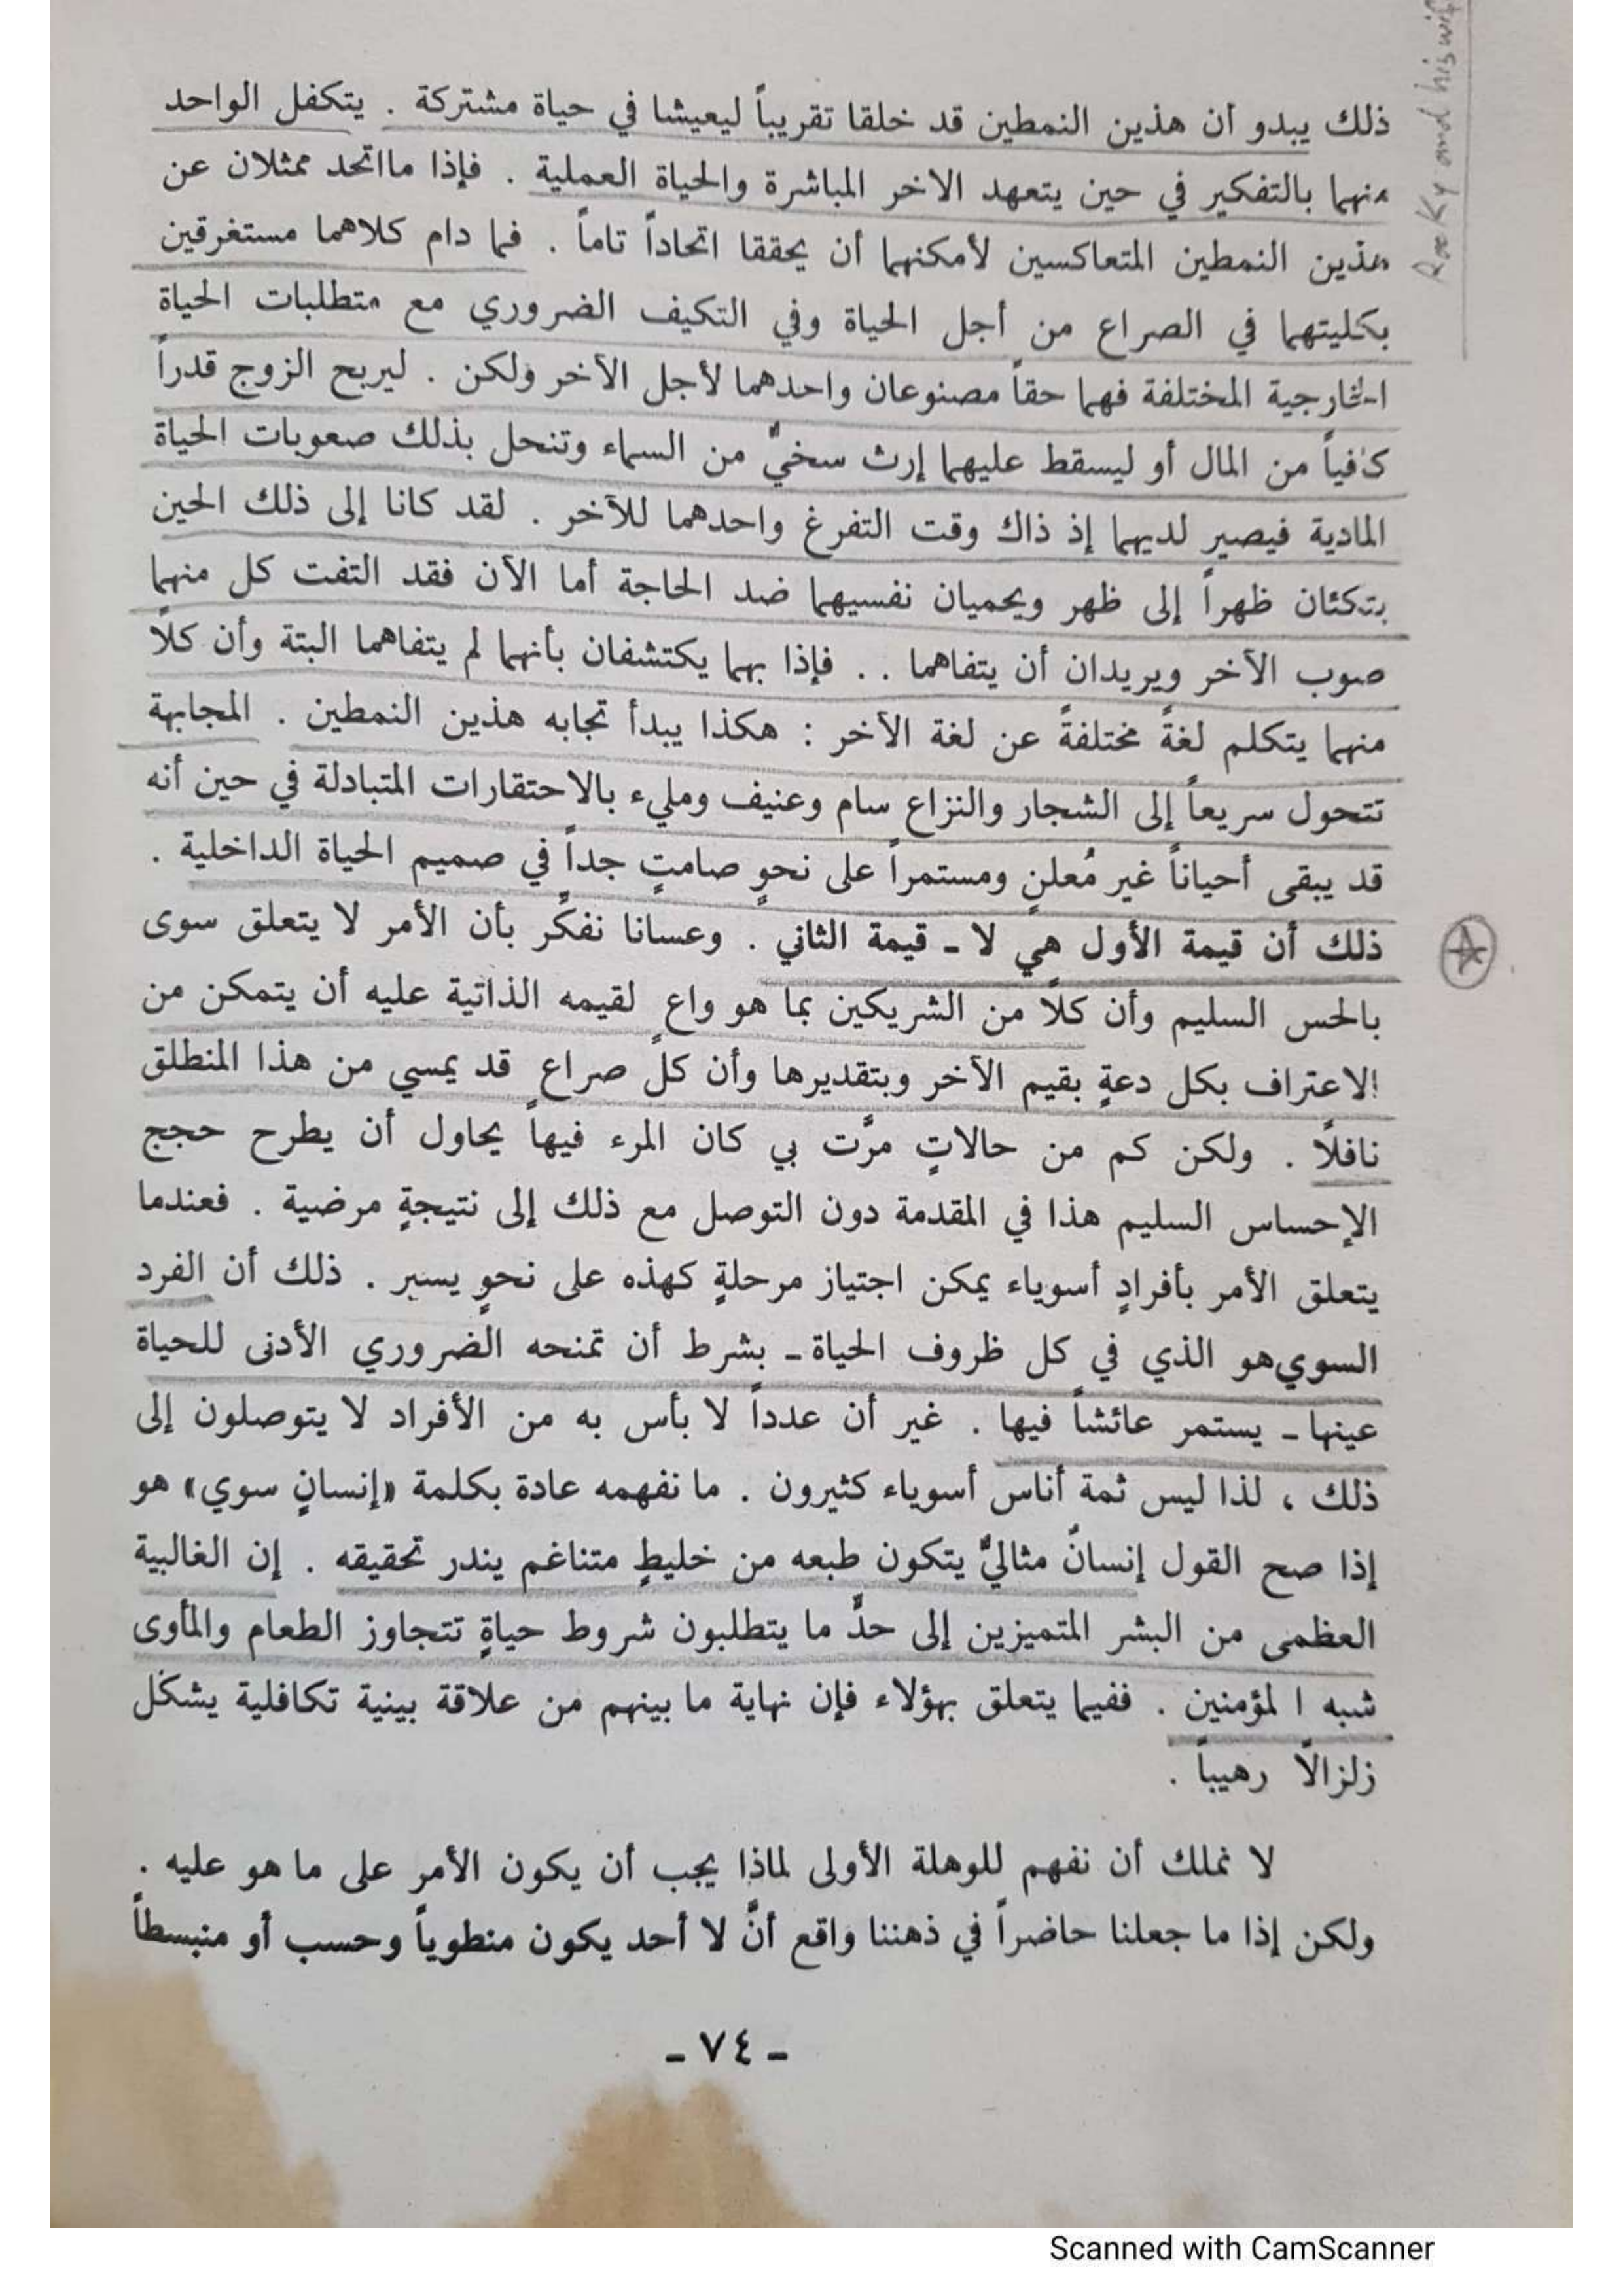 ذلك يبدو أن هذين النمطين قد خلقا تقريباً ليعيشا في حياة مشتركة . يتكفل الواحد
منهما بالتفكير في حين يتعهد الاخر المباشرة والحياة العملية . فإذا مااتحد ممثلان عن
هذين النمطين المتعاكسين لأمكنهما أن يحققا اتحاداً تاماً . فما دام كلاهما مستغرقين
بكليتهما في الصراع من أجل الحياة وفي التكيف الضروري مع متطلبات الحياة
الخارجية المختلفة فهما حقاً مصنوعان واحدهما لأجل الآخر ولكن . ليربح الزوج قدراً
كافياً من المال أو ليسقط عليهما إرث سخيٌّ من السماء وتنحل بذلك صعوبات الحياة
المادية فيصير لديهما إذ ذاك وقت التفرغ واحدهما للآخر . لقد كانا إلى ذلك الحين
يتكئان ظهراً إلى ظهر ويحميان نفسيهما ضد الحاجة أما الآن فقد التفت كل منهما
صوب الآخر ويريدان أن يتفاهما . . فإذا بهما يكتشفان بأنهما لم يتفاهما البتة وأن كلًا
منهما يتكلم لغةً مختلفةً عن لغة الآخر : هكذا يبدأ تجابه هذين النمطين . المجابهة
تتحول سريعاً إلى الشجار والنزاع سام وعنيف ومليء بالاحتقارات المتبادلة في حين أنه
قد يبقى أحياناً غير مُعلنٍ ومستمراً على نحوٍ صامتٍ جداً في صميم الحياة الداخلية .
ذلك أن قيمة الأول هي لا ـ قيمة الثاني . وعسانا نفكّر بأن الأمر لا يتعلق سوى
بالحس السليم وأن كلًا من الشريكين بما هو واع لقيمه الذاتية عليه أن يتمكن من
الاعتراف بكل دعةٍ بقيم الآخر وبتقديرها وأن كلّ صراع قد يمسي من هذا المنطلق
نافلًا . ولكن كم من حالاتٍ مرَّت بي كان المرء فيها يحاول أن يطرح حجج
الإحساس السليم هذا في المقدمة دون التوصل مع ذلك إلى نتيجةٍ مرضية . فعندما
يتعلق الأمر بأفرادٍ أسوياء يمكن اجتياز مرحلةٍ كهذه على نحوٍ يسير . ذلك أن الفرد
السوي هو الذي في كل ظروف الحياة ـ بشرط أن تمنحه الضروري الأدنى للحياة
عينها ـ يستمر عائشاً فيها . غير أن عدداً لا بأس به من الأفراد لا يتوصلون إلى
ذلك ، لذا ليس ثمة أناس أسوياء كثيرون . ما نفهمه عادة بكلمة «إنسانٍ سوي» هو
إذا صح القول إنسانٌ مثاليٌّ يتكون طبعه من خليطٍ متناغم يندر تحقيقه . إن الغالبية
العظمى من البشر المتميزين إلى حدٍّ ما يتطلبون شروط حياةٍ تتجاوز الطعام والمأوى
شبه ا لمؤمنين . ففيما يتعلق بهؤلاء فإن نهاية ما بينهم من علاقة بينية تكافلية يشكل
زلزالًا رهيباً .
لا نملك أن نفهم للوهلة الأولى لماذا يجب أن يكون الأمر على ما هو عليه .
ولكن إذا ما جعلنا حاضراً في ذهننا واقع أنَّ لا أحد يكون منطوياً وحسب أو منبسطاً
ـ ٧٤ ـ
and his
Scanned with CamScanner